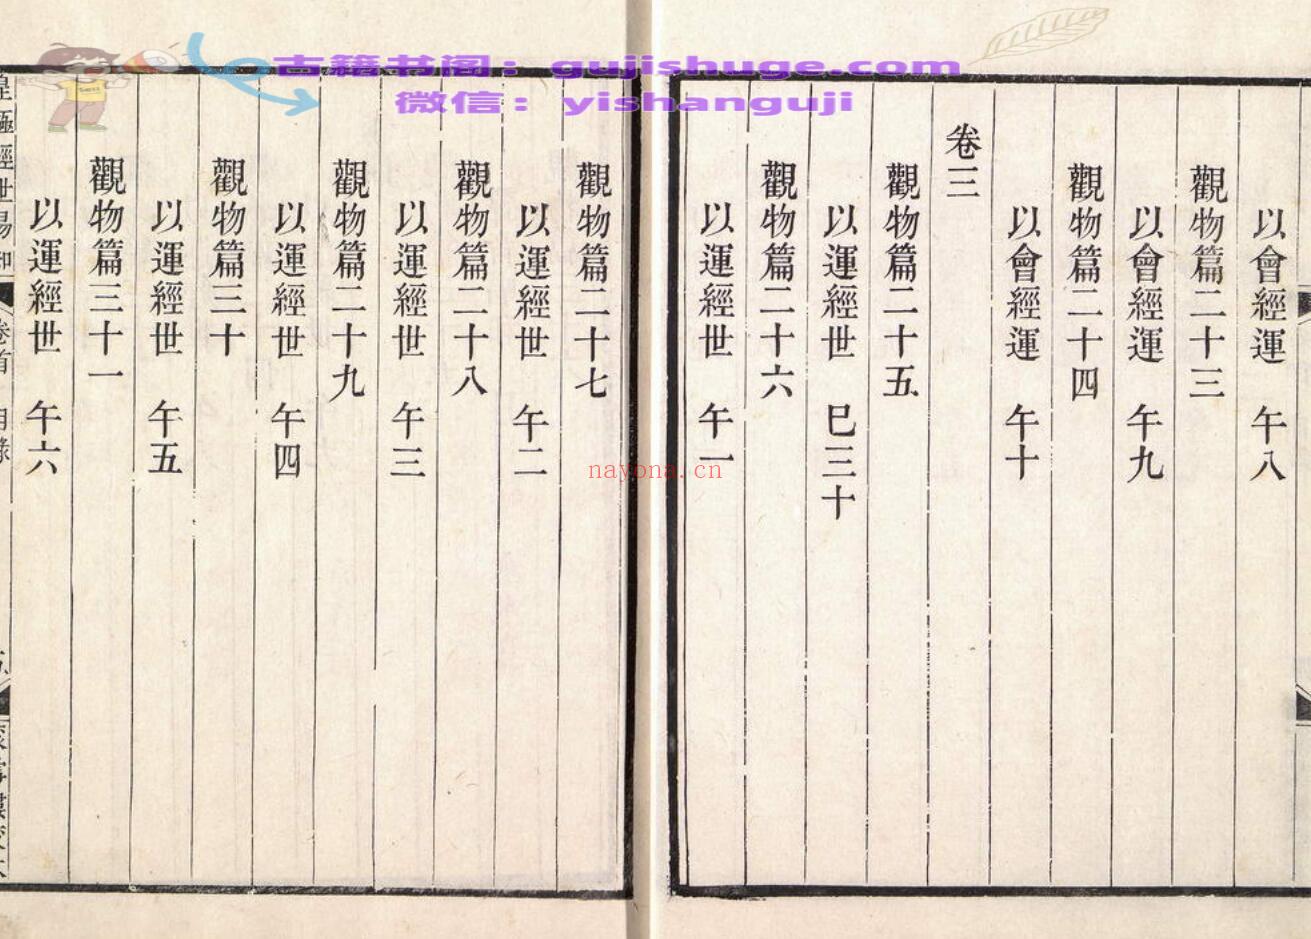 古籍书阁：gujishuge.com
微信：yishanguji
以會經運 午八
觀物篇二十三
以會經運 午九
觀物篇二十四
以會經運 午十
卷三
觀物篇二十五
以運經世 巳三十
觀物篇二十六
以運經世 午一
觀物篇二十七
以運經世 午二
觀物篇二十八
以運經世 午三
觀物篇二十九
以運經世 午四
觀物篇三十
以運經世 午五
觀物篇三十一
以運經世 午六
皇極經世易知 卷首 目錄
nayona.cn